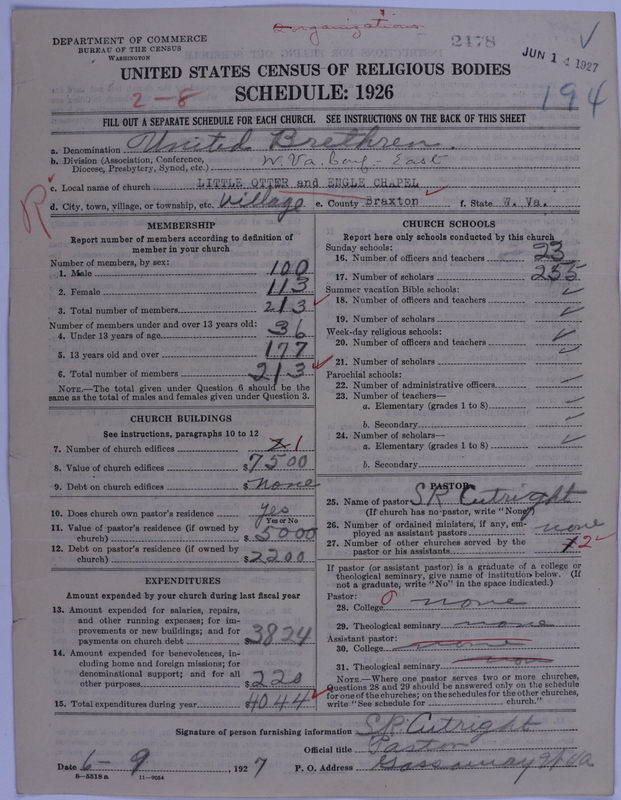 2178
JUN 14 1927
DEPARTMENT OF COMMERCE
BUREAU OF THE CENSUS
WASHINGTON
UNITED STATES CENSUS OF RELIGIOUS BODIES
SCHEDULE: 1926
2-8
194
FILL OUT A SEPARATE SCHEDULE FOR EACH CHURCH. SEE INSTRUCTIONS ON THE BACK OF THIS SHEET
a. Denomination United Brethren.
b. Division (Association, Conference, Diocese, Presbytery, Synod, etc.) W. Va. Conf - East
R c. Local name of church LITTLE OTTER and ENGLE CHAPEL
d. City, town, village, or township, etc. Village e. County Braxton f. State W. Va.
MEMBERSHIP
Report number of members according to definition of
member in your church
Number of members, by sex:
1. Male 100
2. Female 113
3. Total number of members 213
Number of members under and over 13 years old:
4. Under 13 years of age 36
5. 13 years old and over 177
6. Total number of members 213
NOTE.—The total given under Question 6 should be the
same as the total of males and females given under Question 3.
CHURCH BUILDINGS
See instructions, paragraphs 10 to 12
7. Number of church edifices 1
8. Value of church edifices $7500
9. Debt on church edifices $ none
10. Does church own pastor's residence yes
Yes or No
11. Value of pastor's residence (if owned by
church) $5000
12. Debt on pastor's residence (if owned by
church) $2200
EXPENDITURES
Amount expended by your church during last fiscal year
13. Amount expended for salaries, repairs,
and other running expenses; for im-
provements or new buildings; and for
payments on church debt $3824
14. Amount expended for benevolences, in-
cluding home and foreign missions; for
denominational support; and for all
other purposes $220
15. Total expenditures during year $4044
CHURCH SCHOOLS
Report here only schools conducted by this church
Sunday schools:
16. Number of officers and teachers 23
17. Number of scholars 255
Summer vacation Bible schools:
18. Number of officers and teachers
19. Number of scholars
Week-day religious schools:
20. Number of officers and teachers
21. Number of scholars
Parochial schools:
22. Number of administrative officers
23. Number of teachers—
a. Elementary (grades 1 to 8)
b. Secondary
24. Number of scholars—
a. Elementary (grades 1 to 8)
b. Secondary
PASTOR
25. Name of pastor S R Cutright
(If church has no pastor, write "None")
26. Number of ordained ministers, if any, em-
ployed as assistant pastors none
27. Number of other churches served by the
pastor or his assistants 2
If pastor (or assistant pastor) is a graduate of a college or
theological seminary, give name of institution below. (If
not a graduate, write "No" in the space indicated.)
Pastor:
28. College none
29. Theological seminary none
Assistant pastor:
30. College none
31. Theological seminary non
NOTE.—Where one pastor serves two or more churches,
Questions 28 and 29 should be answered only on the schedule
for one of the churches; on the schedules for the other churches,
write "See schedule for church."
Signature of person furnishing information S.R. Cutright
Official title Pastor
Date 6-9, 1927 P. O. Address Gassaway W Va
8-5318a 11-9054